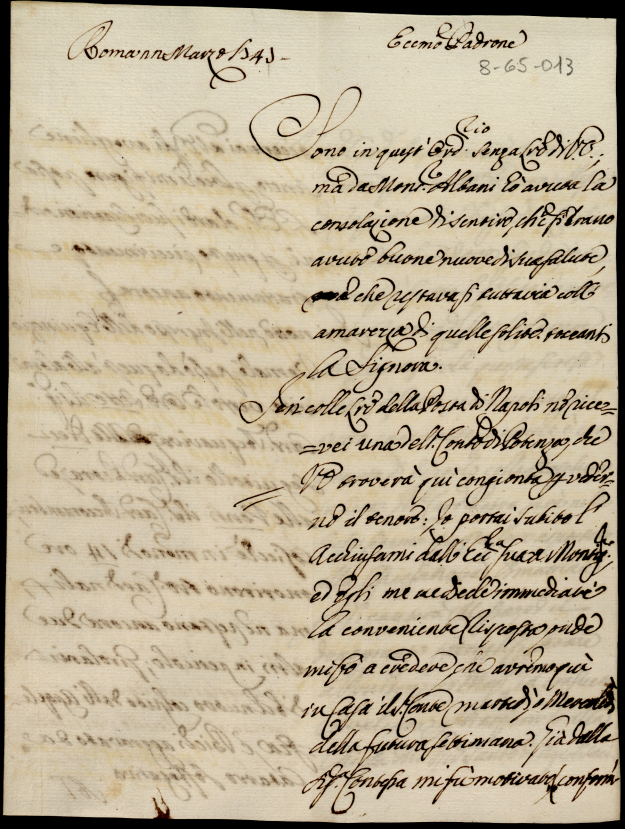 Roma 11 Marzo 1741
Eccmo Padrone
8-65-013
Sono in quest' Ordrio senza Lre di V.E.,
mà da Monsr. Albani hò avuta la
consolazione di sentire, che si erano
avute buone nuove di sua salute,
che restava si tuttavia coll'
amarezza di quelle solite toccanti
la Signora.
Jeri colle Lre della Posta di Napoli nè rice=
=vei una del Sr. Conte di Potenza, che
V.E. troverà quì congionta per veder=
ne il tenore: Io portai subito l'
acchiusami dall' Ecc.
ed egli me ne diede immediate
la conveniente risposta, onde
misò a credere, che avremo quì
in Casa il Sr. Conte martedì, ò Mercoldì
della futura settimana. Già dalla
Sigra. Contessa mi fù motivata conform